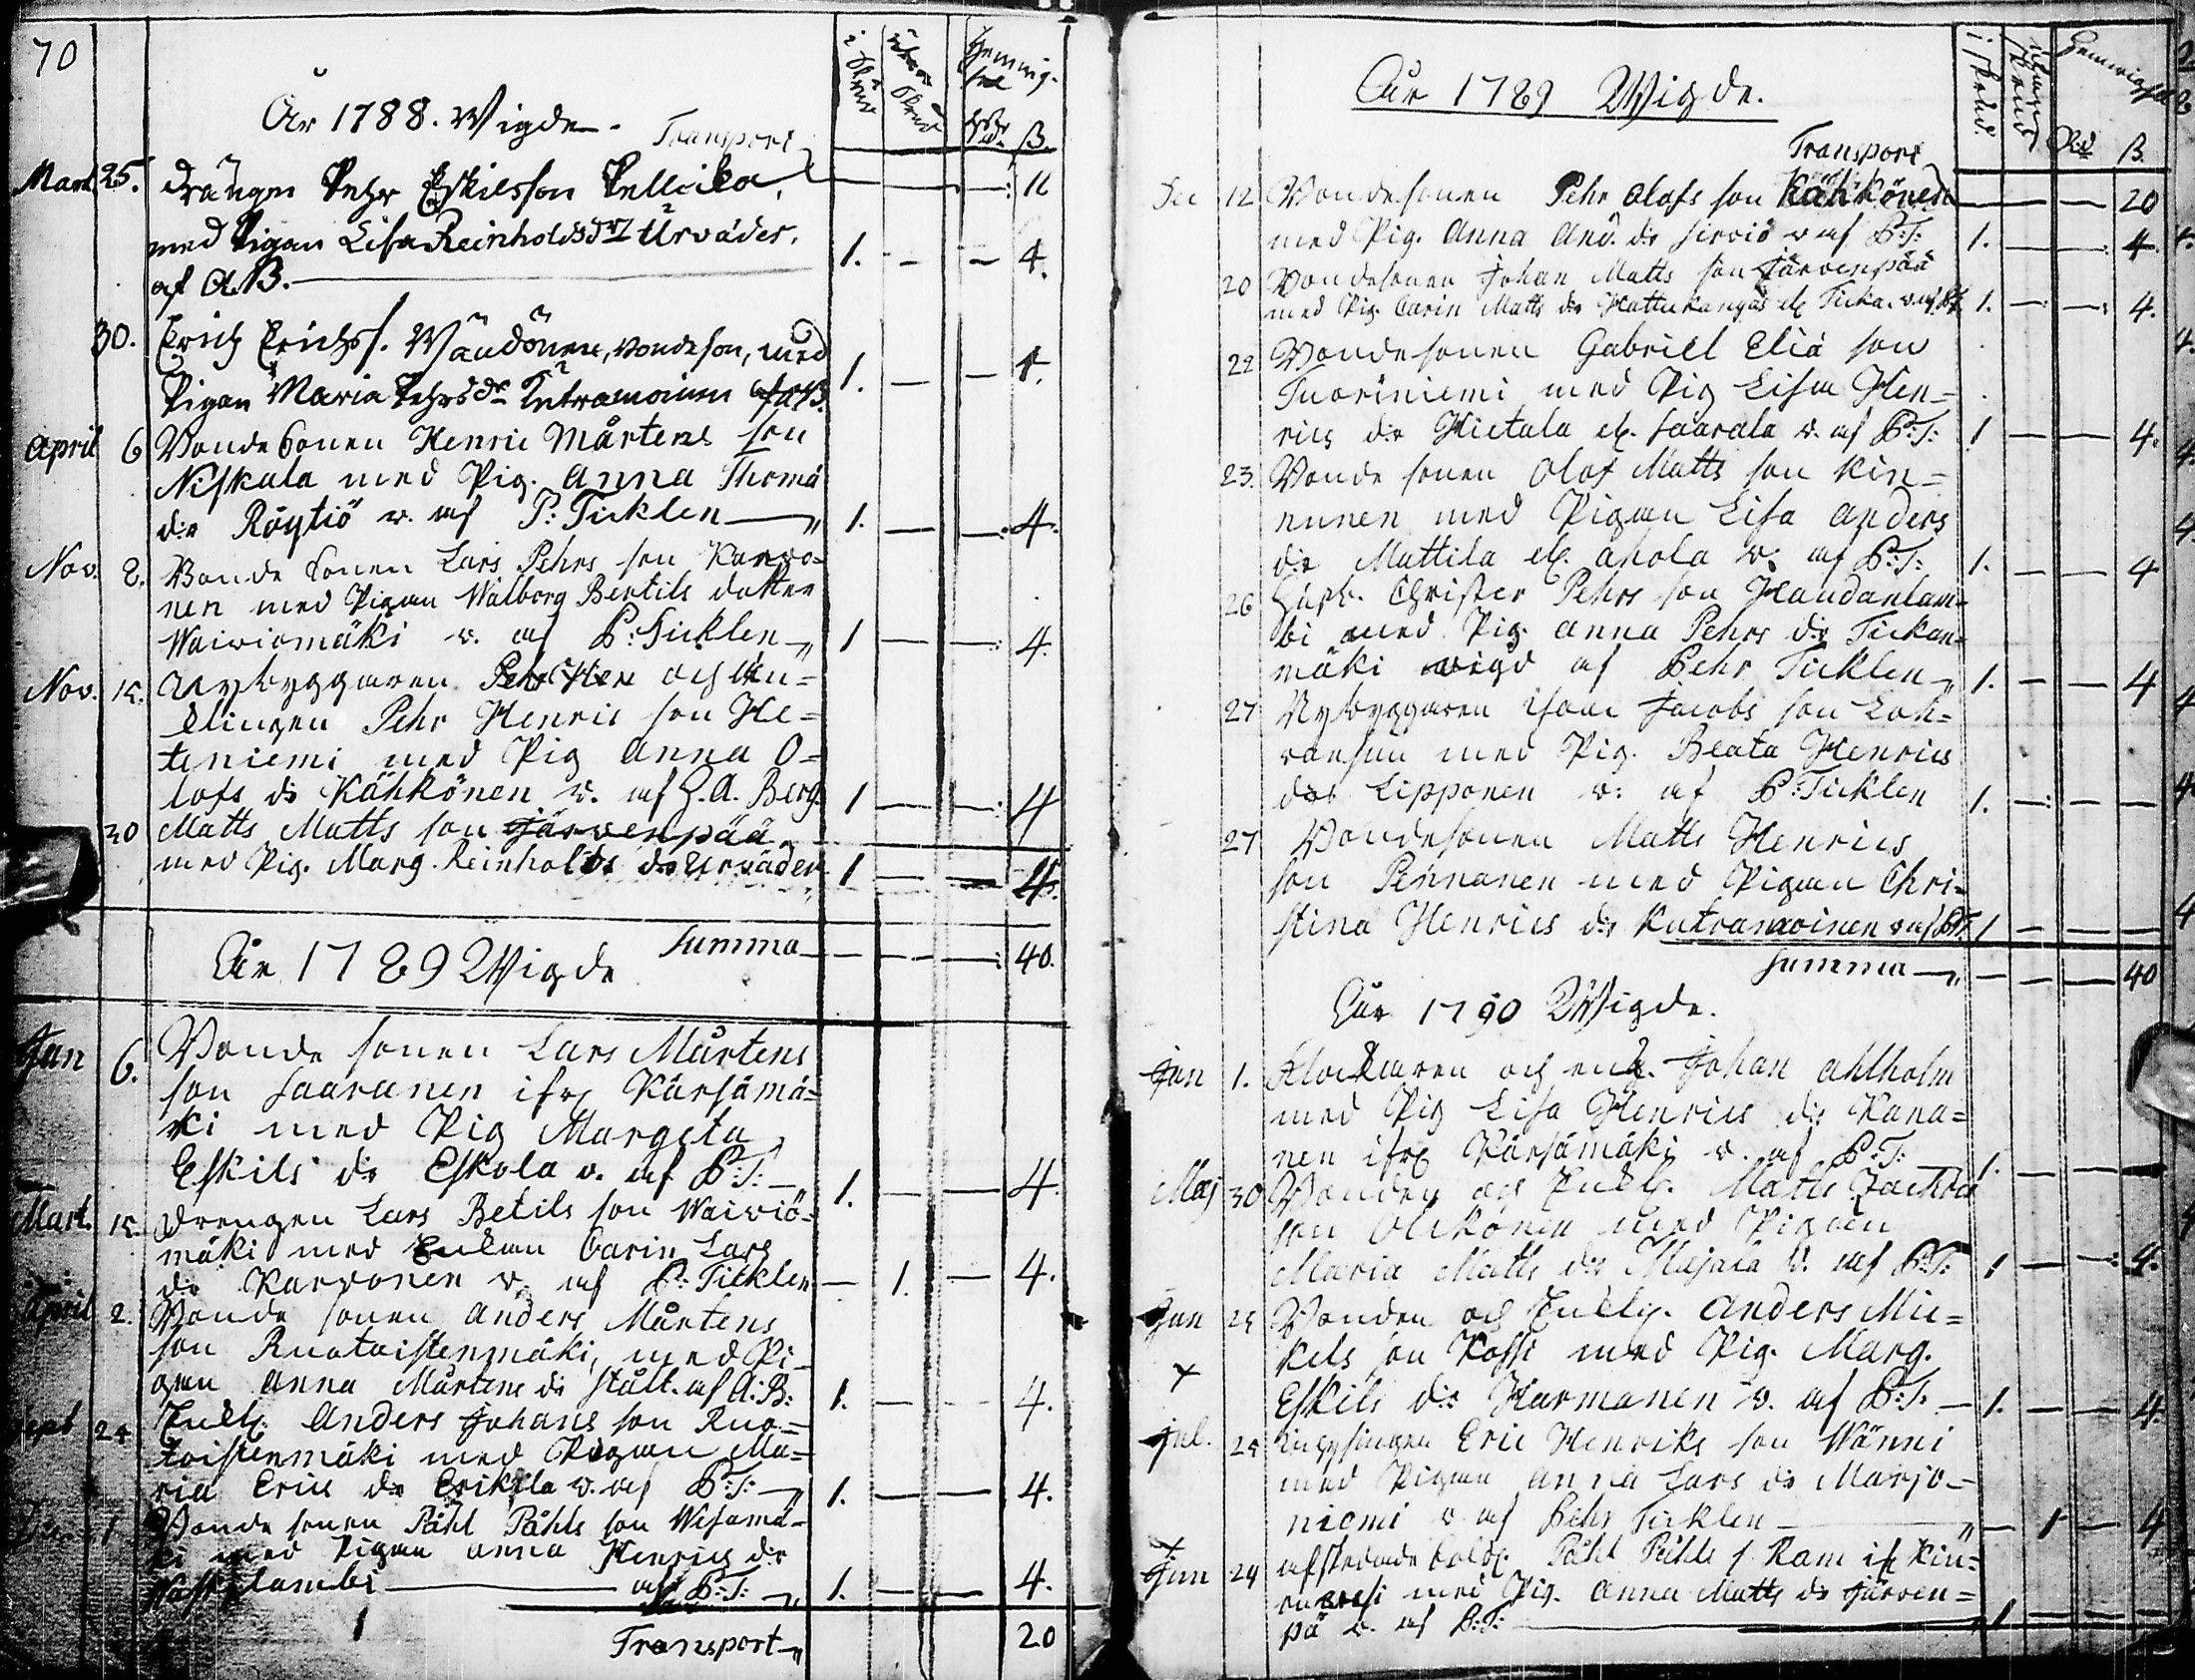 70
År 1788. Wigde.
Transport
Mart. 25. Drängen Pehr Eskilsson
med Pigan Lisa Reinholdsdr Urväder. 1. — — 4.
af A.B.
30. Erich Erichss. Wäudönen, bondeson, med
Pigan Maria Pehrsdr af AB. 1. — —
April 6 Bonde Sonen Henric Mårtens son
Niskala med Pig. Anna Thomæ
dr Röytiö v. af P: Ticklen 1. — — 4.
Nov. 2. Bonde Sonen Lars Pehrs son Karvo=
nen med Pigan Walborg Bertils dotter
Waiviomäki v. af P: Ticklen 1 — — 4.
Nov. 15. Nybyggaren och
Pehr Henric son He=
teniemi med Pig Anna O=
lofs dr Kähkönen v. af A. Berg. 1 — — 4
30 Matts Matts son Järvenpää
med Pig. Marg. Reinholds dr Urväder 1 — — 4.
Summa — — — 40.
År 1789 Wigde
Jan 6. Bonde sonen Lars Mårtens
son Saaranen ifr Kärsämä=
ki med Pig Margeta
Eskils dr Eskola v. af P:T: 1. — — 4.
Mart. 15. Drengen Lars Betils son Waiviö=
mäki med Enkan Carin Lars
dr Karvonen v. af P: Ticklen — 1. — 4.
April 2. Bonde sonen Anders Mårtens
son Ruotaistenmäki, med Pi=
gan Anna Mårtens dr af A:B: 1. — — 4.
Sept 24 Enkl. Anders Johans son Ruo=
taistenmäki med Pigan Ma=
ria Erics dr Erikkla v. af P:T: 1. — — 4.
1 Bonde sonen Påhl Påhls son Wisamä=
ki med Pigan Anna Henrics dr
af P:T: 1. — — 4.
Transport 20
År 1789 Wigde.
Transport
Dec 12 Bondesonen Pehr Olofs son Kähkönen — — — 20
med Pig. Anna And. dr Sirviö v af P:T: 1. — — 4.
20 Bondesonen Johan Matts son Järvenpää
med Pig. Carin Matts dr Hattukangas 1. — — 4.
22 Bondesonen Gabriel Eliæ son
Tuoriniemi med Pig Lisa Hen=
rics dr Hietala el. Saarala v. af P:T: 1 — — 4.
23. Bonde sonen Olof Matts son Kin=
nunen med Pigan Lisa Anders
dr Mattila el. Ahola v. af P:T: 1. — — 4
26 Christer Pehrs son Haudanlam=
bi med Pig. Anna Pehrs dr Tickan=
mäki vigd af Pehr Ticklen 1. — — 4
27 Nybyggaren Isac Jacobs son Loh=
vansuu med Pig. Beata Henrics
dr Lipponen v: af P: Ticklen 1. — — —
27 Bondesonen Matts Henrics
son Pennanen med Pigan Chri=
stina Henrics dr Kutramoinen v af P:T: 1 — — —
Summa — — — 40
År 1790 Wigde.
Jan 1. Klockaren och enkl. Johan Ahlholm
med Pig Lisa Henrics dr Kana=
nen ifr Kärsämäki v. af P:T: 1. — — —
Maj 30 Bonden och Enkl. Matts
son Olikönen med Pigan
Maria Matts dr Majala v. af P:T: 1 — — 4.
Jun 25 Bonden och Enkl. Anders Mic=
kels son Kossi med Pig. Marg.
Eskils dr Harmanen v. af P:T: 1. — — 4.
Jul. 25 Inhysingen Eric Henriks son Wänni
med Pigan Anna Lars dr Marjo=
niemi v. af Pehr Ticklen — 1 — 4
Jun 24 afskedade Sold. Påhl Påhls s. Ram if. Kiu=
ruvesi med Pig. Anna Matts dr Järven=
pä v. af P:T: 1